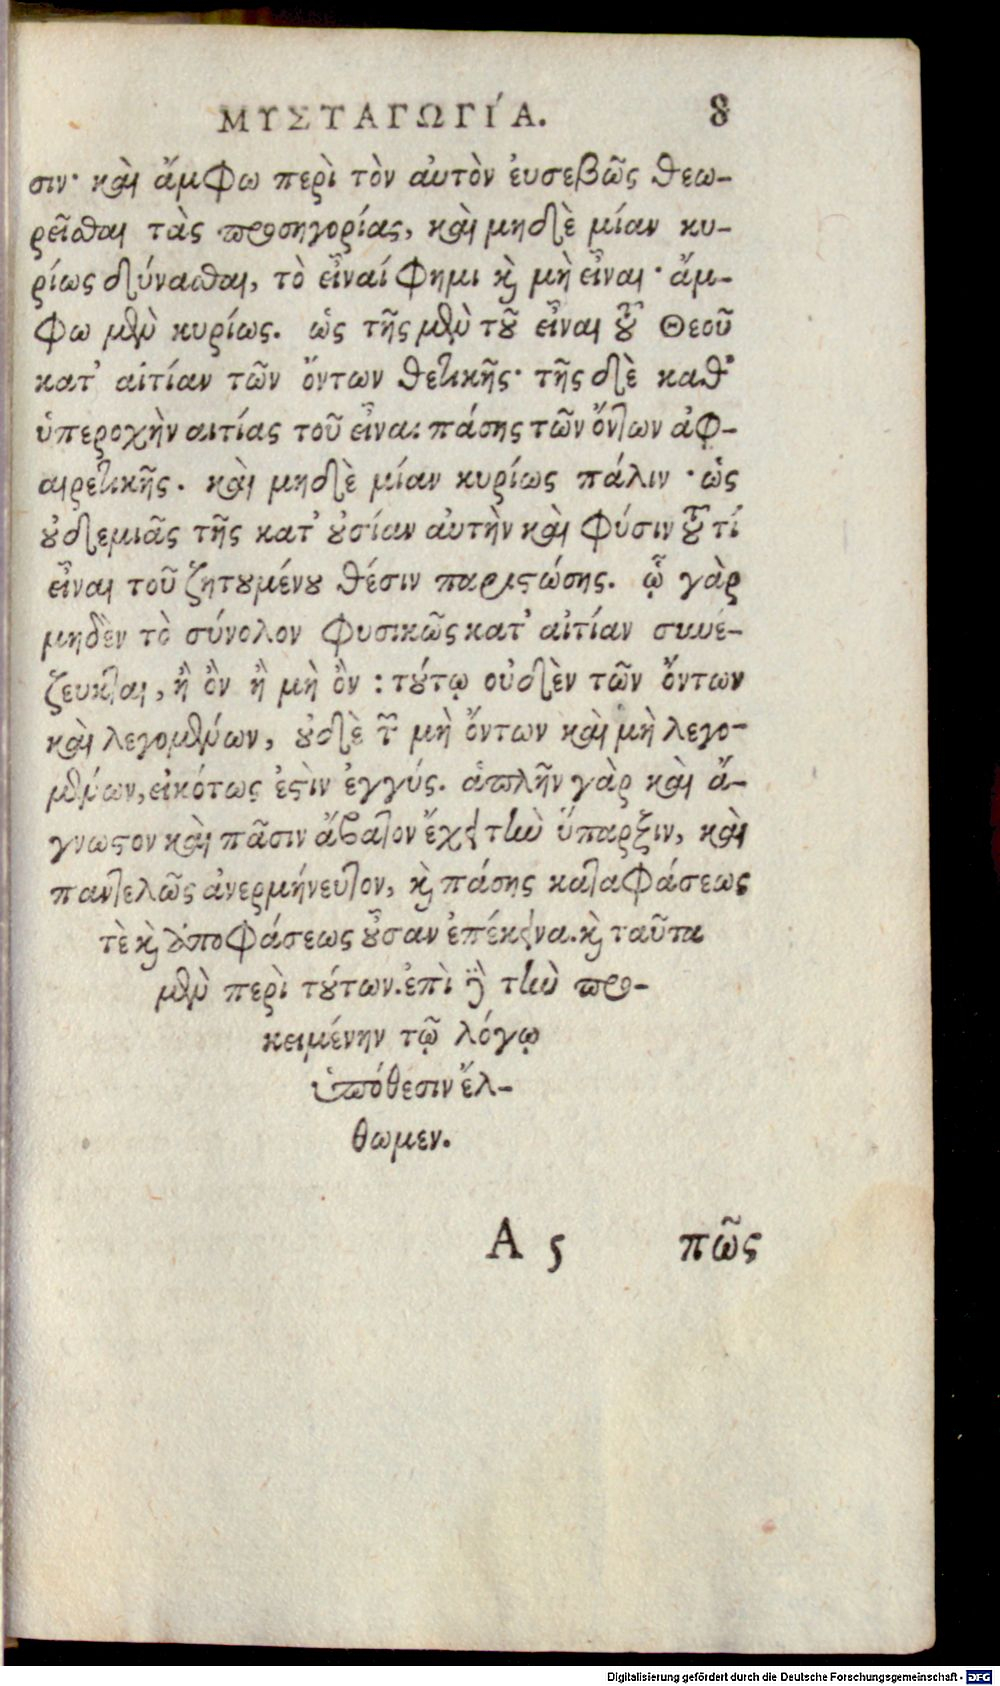 ΜΥΣΤΑΓΩΓΊΑ. 8
σιν· καὶ ἄμφω περὶ τὸν αὐτὸν ἐυσεβῶς θεω-
ρεῖσθαι τὰς προσηγορίας, καὶ μηδὲ μίαν κυ-
ρίως δύνασθαι, τὸ εἶναί φημι καὶ μὴ εἶναι· ἄμ-
φω μὲν κυρίως. ὡς τῆς μὲν τοῦ εἶναι τοῦ Θεοῦ
κατ’ αἰτίαν τῶν ὄντων θετικῆς· τῆς δὲ καθ’
ὑπεροχὴν αιτίας τοῦ εἶναι πάσης τῶν ὄντων ἀφ-
αιρετικῆς. καὶ μηδὲ μίαν κυρίως πάλιν· ὡς
οὐδεμιᾶς τῆς κατ’ οὐσίαν αὐτὴν καὶ φύσιν τοῦ τί
εἶναι τοῦ ζητουμένου θέσιν παριστώσης. ᾧ γὰρ
μηδὲν τὸ σύνολον φυσικῶς κατ’ αἰτίαν συνέ-
ζευκται, ἢ ὂν ἢ μὴ ὂν : τούτῳ οὐδὲν τῶν ὄντων
καὶ λεγομένων, οὐδὲ τῶν μὴ ὄντων καὶ μὴ λεγο-
μένων, εἰκότως ἐστὶν ἐγγύς. ἁπλῆν γὰρ καὶ ἄ-
γνωστον καὶ πᾶσιν ἄβατον ἔχει τὴν ὕπαρξιν, καὶ
παντελῶς ἀνερμήνευτον, καὶ πάσης καταφάσεως
τὲ καὶ ἀποφάσεως οὖσαν ἐπέκεινα. καὶ ταῦτα
μὲν περὶ τούτων. ἐπὶ δὲ τὴν προ-
κειμένην τῷ λόγῳ
ὑπόθεσιν ἔλ-
θωμεν.
Α 5 πῶς
Digitalisierung gefördert durch die Deutsche Forschungsgemeinschaft - DFG